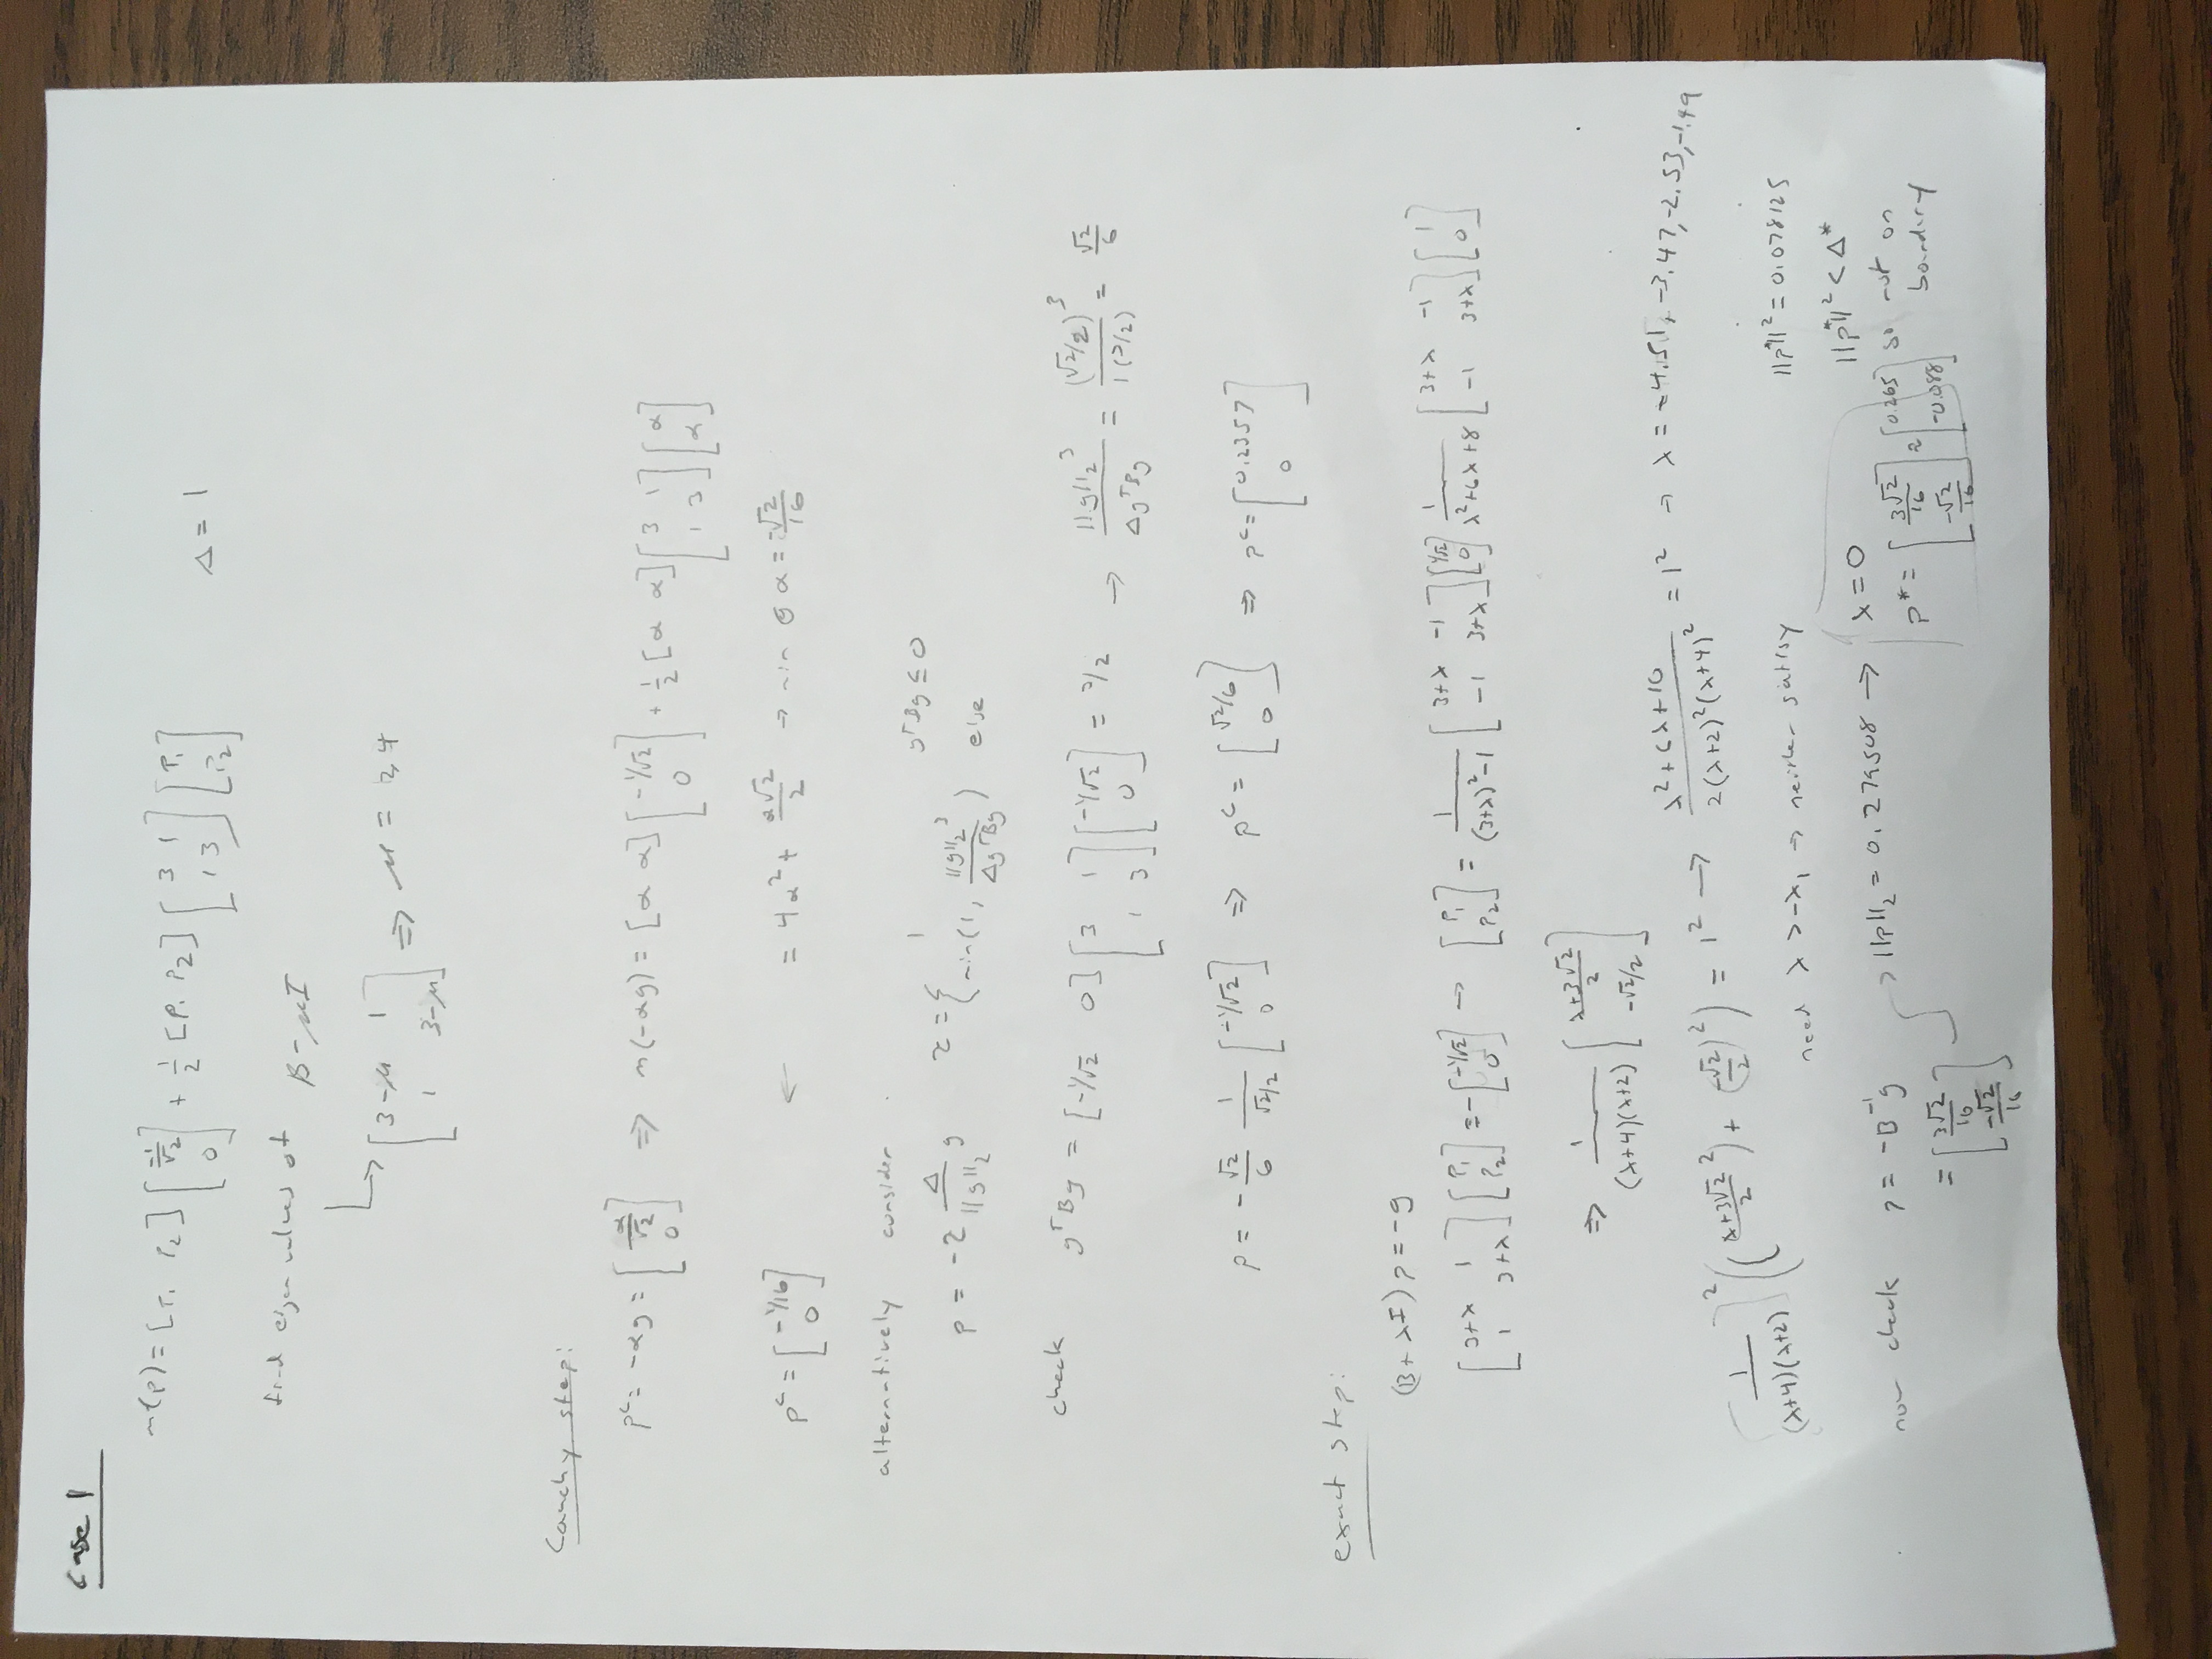 Case 1
m(p) = [P₁ P₂] [-1/√2; 0] + 1/2 [P₁ P₂] [3 1; 1 3] [P₁; P₂]    Δ = 1
find eigen values of B-μI
↳ [3-μ 1; 1 3-μ] ⇒ μ = 2,4
Cauchy step:
pᶜ = -αg = [α/√2; 0] ⇒ m(-αg) = [α α] [-1/√2; 0] + 1/2 [α α] [3 1; 1 3] [α; α]
pᶜ = [-1/16; 0] ← = 4α² + α√2/2 → min @ α = -√2/16
alternatively consider
p = -τ Δ/||g||₂ g    τ = { 1    gᵀBg ≤ 0
min(1, ||g||₂³/ΔgᵀBg) else
check gᵀBg = [-1/√2 0] [3 1; 1 3] [-1/√2; 0] = 3/2 → ||g||₂³/ΔgᵀBg = (√2/2)³/1(3/2) = √2/6
p = -√2/6 1/√2/2 [-1/√2; 0] ⇒ pᶜ = [√2/6; 0] ⇒ pᶜ = [0.2357; 0]
exact step:
(B+λI) p = -g
[3+λ 1; 1 3+λ] [P₁; P₂] = -[-1/√2; 0] → [P₁; P₂] = 1/(3+λ)²-1 [3+λ -1; -1 3+λ] [1/√2; 0] 1/λ²+6λ+8 [3+λ -1; -1 3+λ] [1; 0]
⇒ 1/(λ+4)(λ+2) [λ+3√2/2; -√2/2]
[1/(λ+4)(λ+2)]² ((λ+3√2/2²) + (-√2/2)²) = 1² → λ²+6λ+10/2(λ+2)²(λ+4)² = 1² → λ = -4.51, -3.47, -2.53, -1.49
need λ > -λ₁ → neither satisfy
now check p = -B⁻¹g
= [3√2/16; -√2/16]
→ ||p||₂ = 0.279508 → λ = 0
p* = [3√2/16; -√2/16] ≈ [0.265; -0.088]
||p*||² = 0.078125
||p*||² < Δ*
so not on
boundry